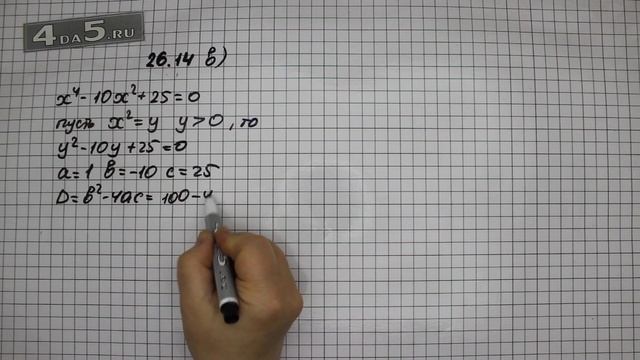 4DA5.RU
26.14 в)
x⁴-10x²+25=0
пусть x²=y y>0, то
y²-10y+25=0
a=1 в=-10 c=25
D=в²-4ac= 100-4